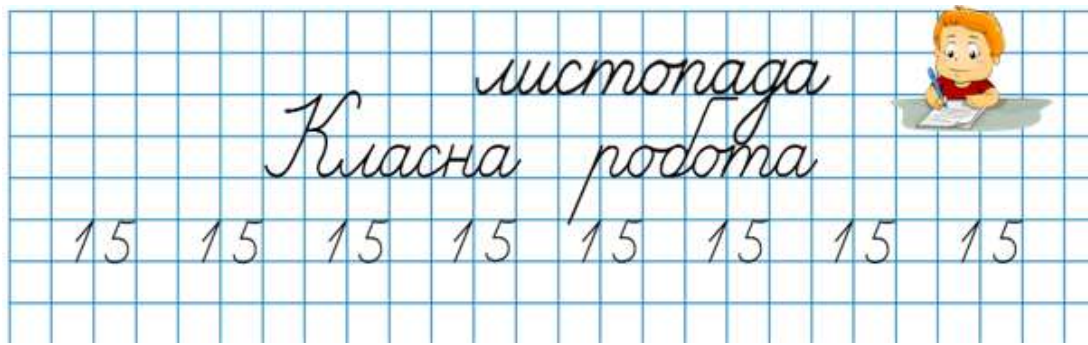 листопада
Класна робота
15 15 15 15 15 15 15 15